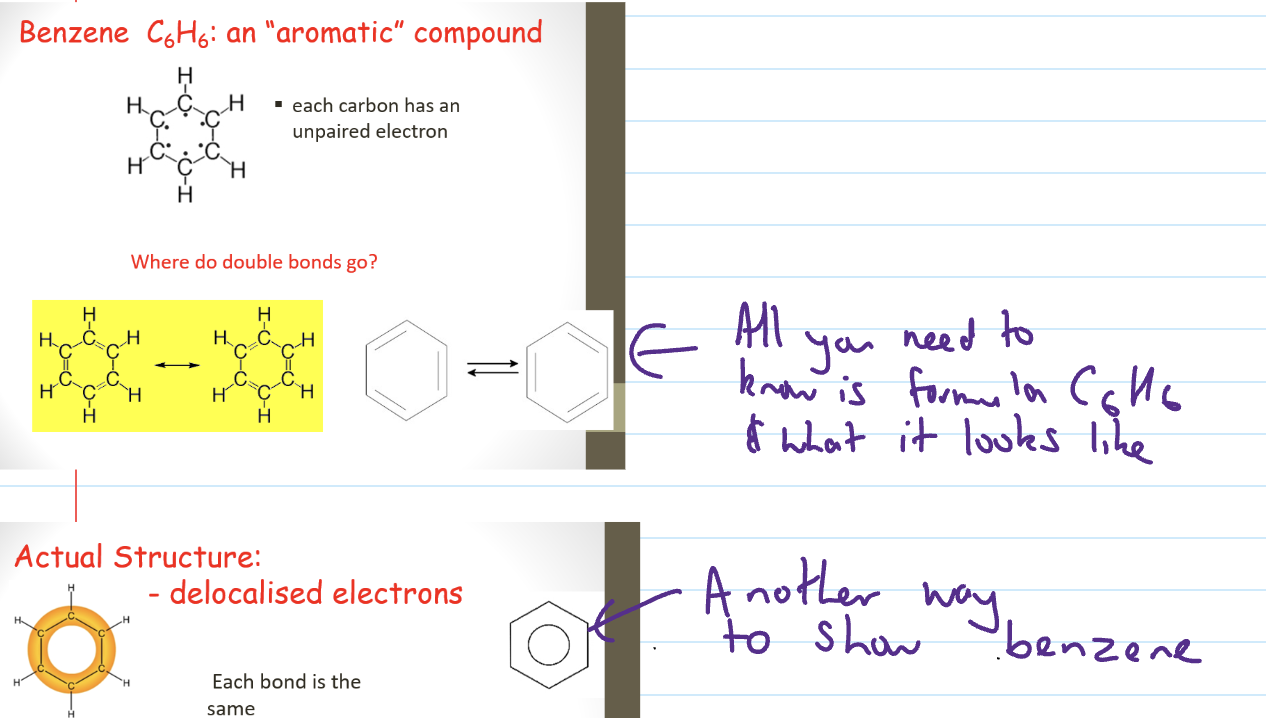 Benzene C₆H₆: an “aromatic” compound
H
H C H
C C
C C
H C H
H
▪ each carbon has an
unpaired electron
Where do double bonds go?
H H
H C H H C H
C C C C
C C C C
H C H H C H
H H
All you need to
know is formula C₆H₆
& what it looks like
Actual Structure:
- delocalised electrons
H
H C H
C C
C C
H C H
H
Each bond is the
same
Another way
to show benzene